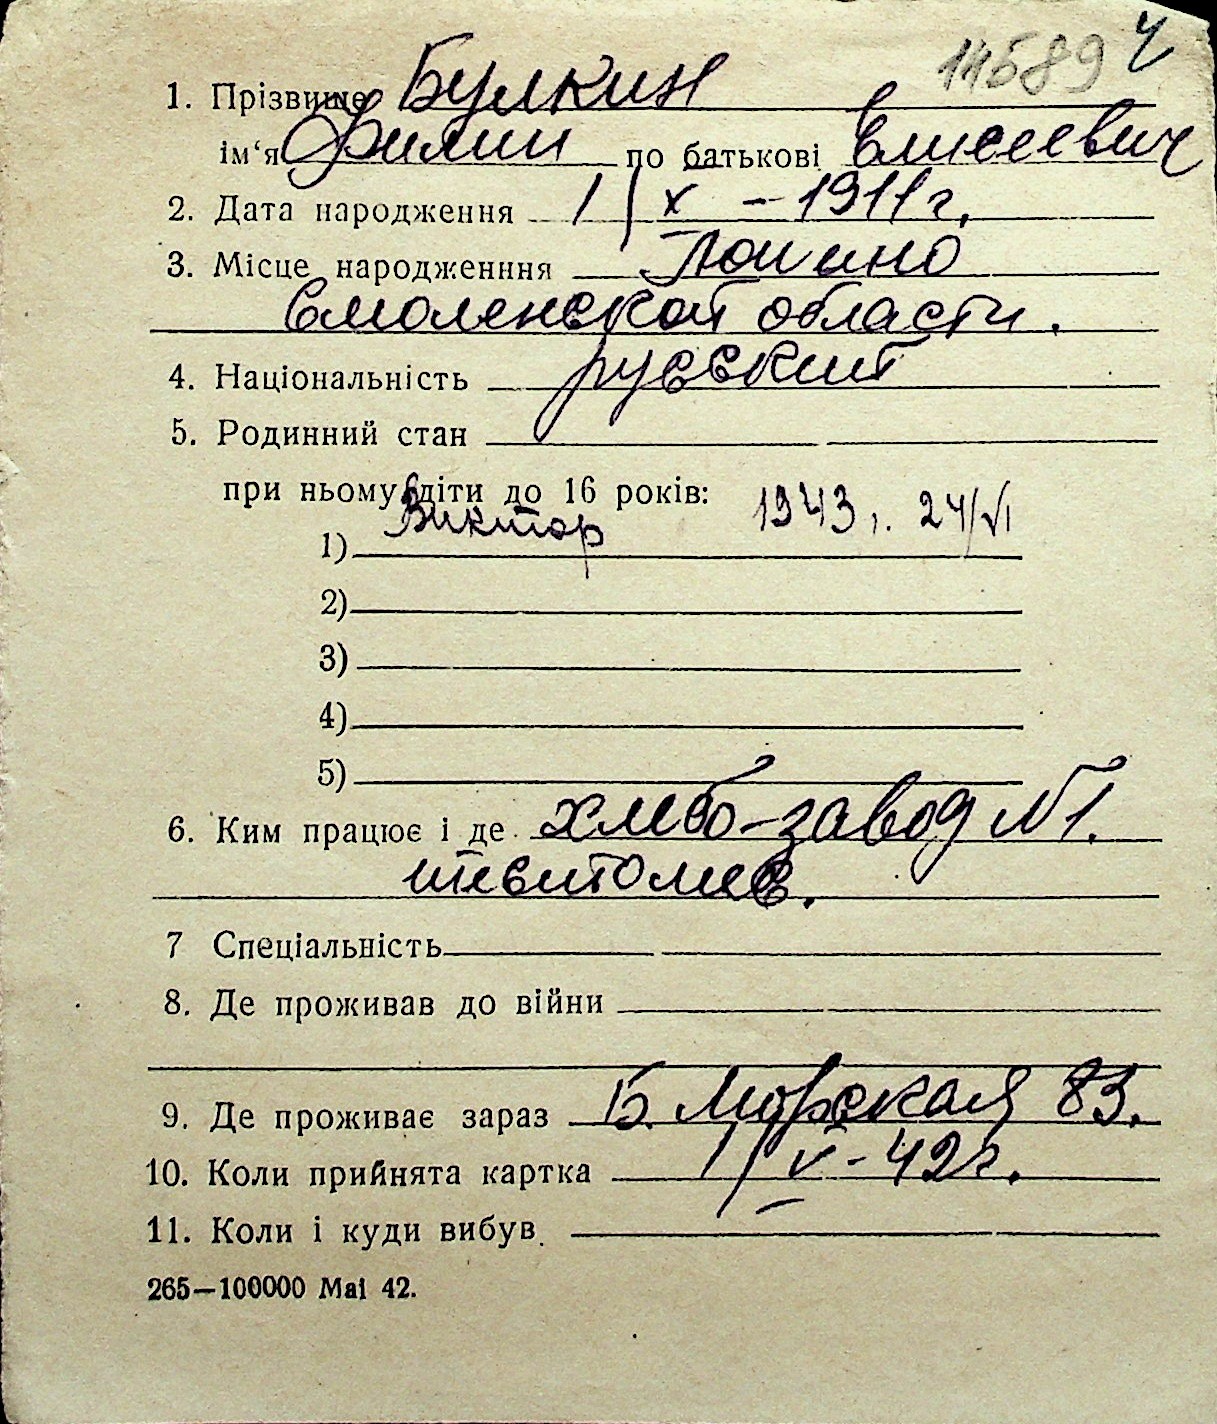 14589 Ч
1. Прізвище Булкин
ім‘я Филип по батькові Елисеевич
2. Дата народження 1/X – 1911 г.
3. Місце народженння
Смоленской области.
4. Національність русский
5. Родинний стан
при ньому діти до 16 років:
1) Виктор 1943 г. 24/VI
2)
3)
4)
5)
6. Ким працює і де хлебо-завод №1.
7 Спеціальність
8. Де проживав до війни
9. Де проживає зараз Б. Морская 83.
10. Коли прийнята картка 1/V - 42 г.
11. Коли і куди вибув.
265—100000 Mai 42.